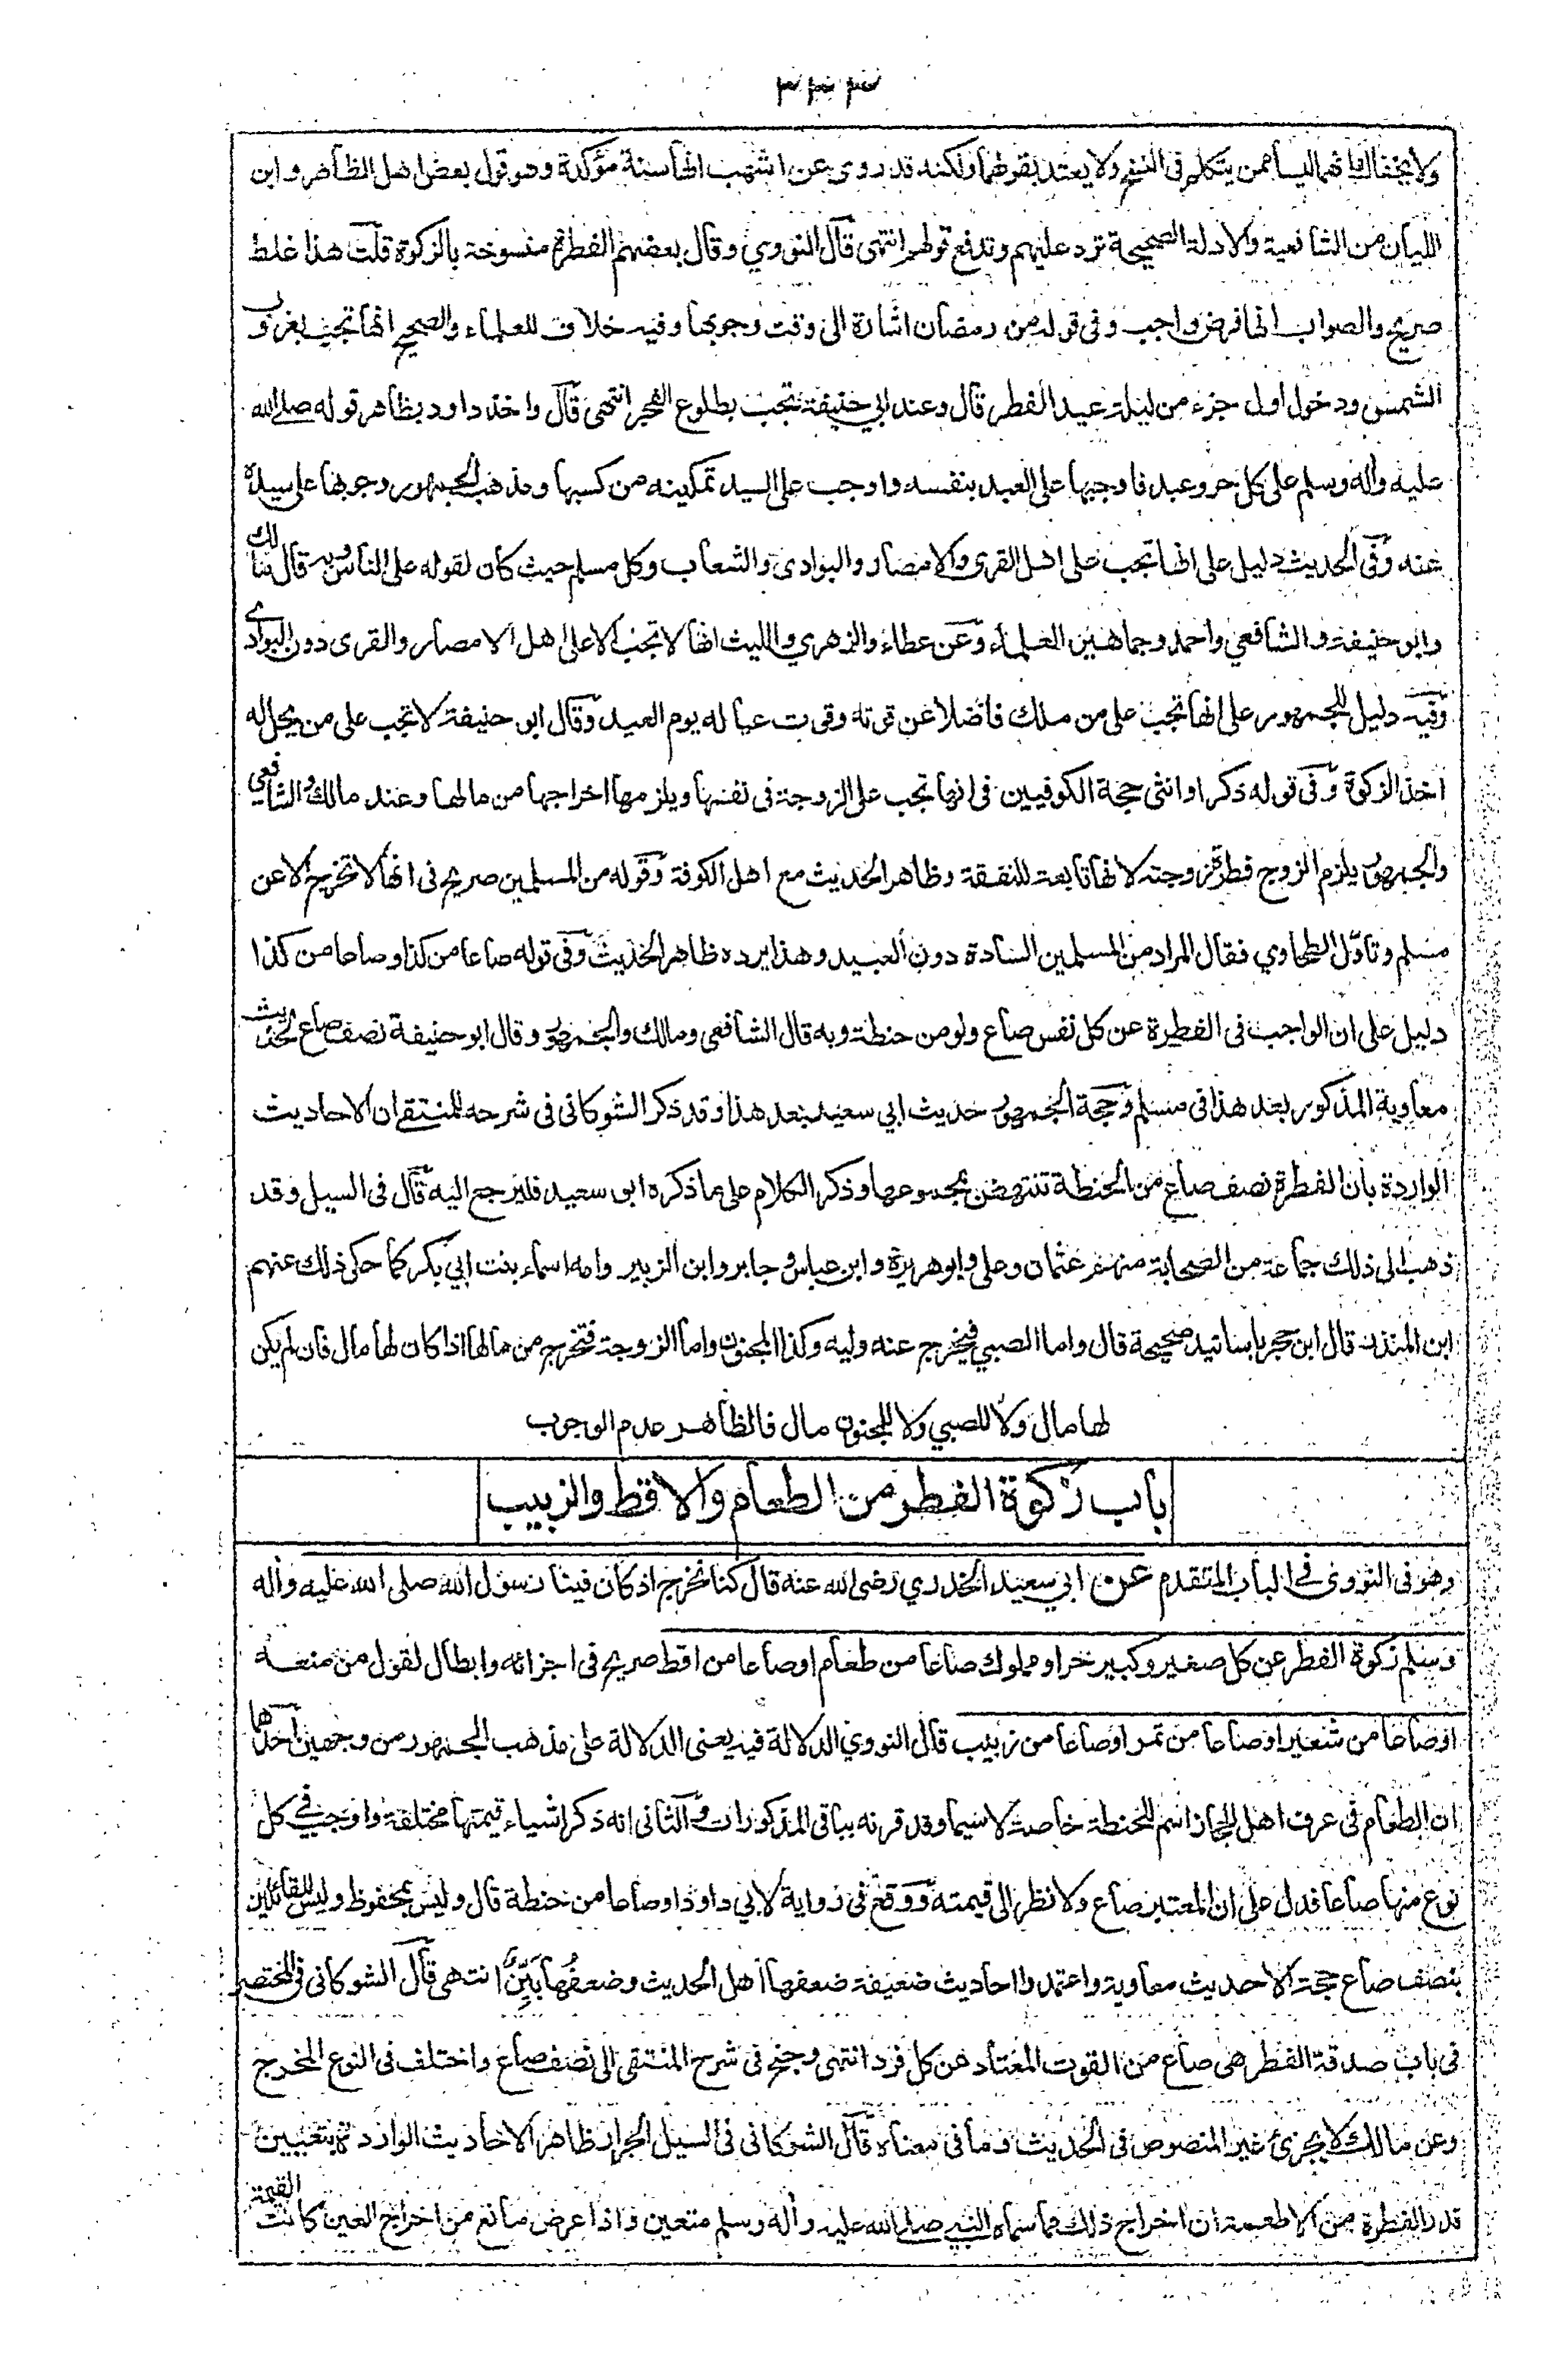 ٣٣٣
ولا يخفاك انهما ليسا ممن يتكلم فى النسخ ولا يعتد بقولهما ولكنه قد روى عن اشهب انها سنة مؤكدة وهو قول بعض اهل الظاهر وابن
اللبان من الشافعية والادلة الصحيحة ترد عليهم وتدفع قولهم انتهى قال النووي وقال بعضهم الفطرة منسوخة بالزكوة قلت هذا غلط
صريح والصواب انها فرض واجب وفى قوله من رمضان اشارة الى وقت وجوبها وفيه خلاف للعلماء والصحيح انها تجب بغروب
الشمس ودخول اول جزء من ليلة عيد الفطر قال وعند ابي حنيفة تجب بطلوع الفجر انتهى قال واخذ داود بظاهر قوله صلى الله
عليه واله وسلم على كل حر وعبد فاوجبها على العبد بنفسه واوجب على السيد تمكينه من كسبها ومذهب الجمهور وجوبها على سيده
عنه وفى الحديث دليل على انها تجب على اهل القرى والامصار والبوادى والشعاب وكل مسلم حيث كان لقوله على الناس وبه قال مالك
وابو حنيفة والشافعي واحمد وجماهير العلماء وعن عطاء والزهري والليث انها لا تجب الا على اهل الامصار والقرى دون البوادى
وفيه دليل للجمهور على انها تجب على من ملك فاضلا عن قوته وقوت عياله يوم العيد وقال ابو حنيفة لا تجب على من يحل له
اخذ الزكوة وفى قوله ذكر او انثى حجة الكوفيين فى انها تجب على الزوجة فى نفسها ويلزمها اخراجها من مالها وعند مالك والشافعي
والجمهور يلزم الزوج فطرة زوجته لانها تابعة للنفقة وظاهر الحديث مع اهل الكوفة وقوله من المسلمين صريح فى انها لا تخرج الا عن
مسلم وتاول الطحاوي فقال المراد من المسلمين السادة دون العبيد وهذا يرده ظاهر الحديث وفى قوله صاعا من كذا وصاعا من كذا
دليل على ان الواجب فى الفطرة عن كل نفس صاع ولو من حنطة وبه قال الشافعي ومالك والجمهور وقال ابو حنيفة نصف صاع لحديث
معاوية المذكور بعد هذا فى مسلم وحجة الجمهور حديث ابي سعيد بعد هذا وقد ذكر الشوكانى فى شرحه للمنتقى ان الاحاديث
الواردة بان الفطرة نصف صاع من الحنطة تنتهض بمجموعها وذكر الكلام على ما ذكره ابو سعيد فليرجع اليه قال فى السيل وقد
ذهب الى ذلك جماعة من الصحابة منهم عثمان وعلى وابو هريرة وابن عباس وجابر وابن الزبير وامه اسماء بنت ابي بكر كما حكى ذلك عنهم
ابن المنذر قال ابن حجر باسانيد صحيحة قال واما الصبي فيخرج عنه وليه وكذا المجنون واما الزوجة فتخرج من مالها اذا كان لها مال فان لم يكن
لها مال ولا للصبي ولا للمجنون مال فالظاهر عدم الوجوب
باب زكوة الفطر من الطعام والاقط والزبيب
وهو فى النووى فى الباب المتقدم عن ابي سعيد الخدري رضى الله عنه قال كنا نخرج اذ كان فينا رسول الله صلى الله عليه واله
وسلم زكوة الفطر عن كل صغير وكبير حر او مملوك صاعا من طعام او صاعا من اقط صريح فى اجزائه وابطال لقول من منعه
او صاعا من شعير او صاعا من تمر او صاعا من زبيب قال النووي الدلالة فيه يعنى الدلالة على مذهب الجمهور من وجهين احدها
ان الطعام فى عرف اهل الحجاز اسم للحنطة خاصة لا سيما وقد قرنه بباقى المذكورات والثانى انه ذكر اشياء قيمتها مختلفة واوجب فى كل
نوع منها صاعا فدل على ان المعتبر صاع ولا نظر الى قيمته ووقع فى رواية لابي داود او صاعا من حنطة قال وليس بمحفوظ وليس للقائلين
بنصف صاع حجة الا حديث معاوية واعتمدوا احاديث ضعيفة ضعفها اهل الحديث وضعفُها بَيِّنٌ انتهى قال الشوكانى فى المختصر
فى باب صدقة الفطر هى صاع من القوت المعتاد عن كل فرد انتهى وجنح فى شرح المنتقى الى نصف صاع واختلف فى النوع المخرج
وعن مالك لا يجزئ غير المنصوص فى الحديث وما فى معناه قال الشوكانى فى السيل الجرار ظاهر الاحاديث الواردة بتعيين
قدر الفطرة من الاطعمة ان اخراج ذلك مما سماه النبي صلى الله عليه واله وسلم متعين واذا عرض مانع من اخراج العين كانت القيمة